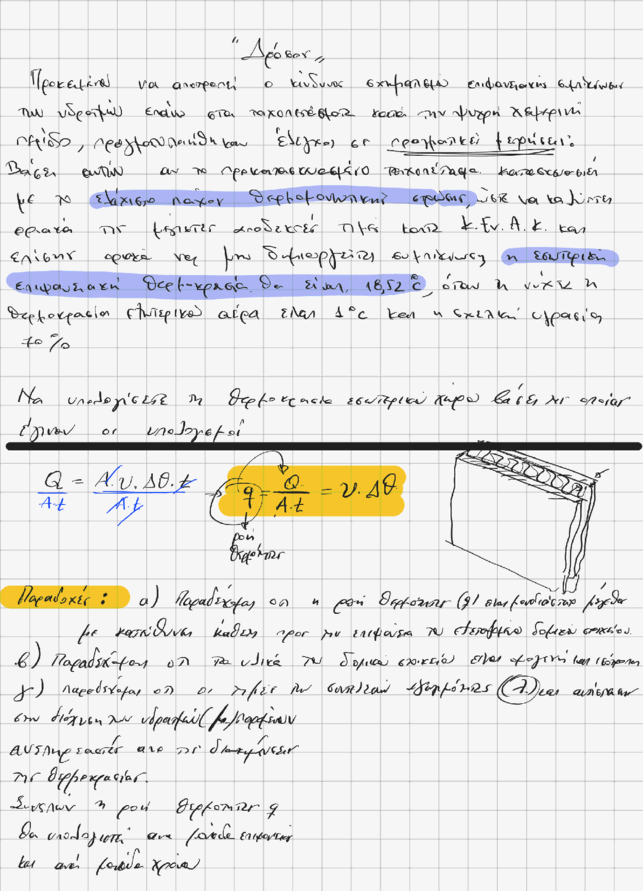 "Δρόσον"
Προκειμένου να αποτραπεί ο κίνδυνος σχηματισμού επιφανειακής συμπύκνωσης
των υδρατμών επάνω στα τοιχοπετάσματα κατά την ψυχρή χειμερινή
περίοδο, πραγματοποιήθηκαν έλεγχοι σε πραγματικές μετρήσεις.
Βάσει αυτών αν το προκατασκευασμένο τοιχοπέτασμα κατασκευαστεί
με το ελάχιστο πάχος θερμομονωτικής στρώσης, ώστε να καλύπτει
οριακά τις μέγιστες αποδεκτές τιμές κατά Κ.Εν.Α.Κ. και
επίσης οριακά να μην δημιουργείται συμπύκνωση η εσωτερική
επιφανειακή θερμοκρασία θα είναι 18,52 °C, όταν τη νύχτα η
θερμοκρασία εξωτερικού αέρα είναι 1°C και η σχετική υγρασία
70%
Να υπολογίσετε τη θερμοκρασία εσωτερικού χώρου βάσει της οποίας
έγιναν οι υπολογισμοί
Q/A.t = A.υ.Δθ.t/A.t → q = Q/A.t = υ.Δθ
ροή
θερμότητας
Παραδοχές: α) Παραδεχόμαστε οτι η ροή θερμότητας (q) είναι μονοδιάστατο μέγεθος
με κατεύθυνση κάθετη προς την επιφάνεια του εξεταζόμενου δομικού στοιχείου.
β) Παραδεχόμαστε οτι τα υλικά του δομικού στοιχείου είναι ομογενή και ισότροπα
γ) Παραδεχόμαστε οτι οι τιμές των συντελεστών αγωγιμότητας (λ) και αντίστασης
στην διάχυση των υδρατμών (μ) παραμένουν
ανεπηρέαστες απο τις διακυμάνσεις
της θερμοκρασίας.
Συνεπώς η ροή θερμότητας q
θα υπολογιστεί ανα μονάδα επιφανείας
και ανά μονάδα χρόνου